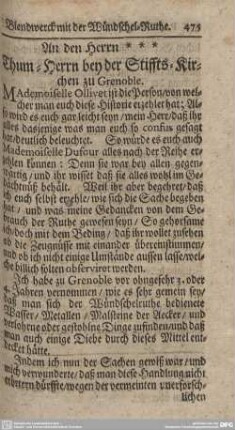 Blendwerck mit der Wündschel-Ruthe. 475
An den Herrn * * *
Thum-Herrn bey der Stiffts-Kir-
chen zu Grenoble.
MAdemoiselle Ollivet ist die Person/von wel-
cher man euch diese Historie erzehlet hat; Al-
so wird es euch gar leicht seyn/mein Herr/daß ihr
alles dasjenige was man euch so confus gesagt
hat/deutlich beleuchtet. So würde es euch auch
Mademoiselle Dufour alles nach der Reihe er-
zehlen können: Denn sie war bey allen gegen-
wärtig/und ihr wisset daß sie alles wohl im Ge-
dächtnüß behält. Weil ihr aber begehret/daß
ich euch selbst erzehle/wie sich die Sache begeben
hat/und was meine Gedancken von dem Ge-
brauch der Ruthe gewesen seyn/So gehorsame
ich/doch mit dem Beding/daß ihr wollet zusehen
ob die Zeugnüsse mit einander übereinstimmen/
und ob ich nicht einige Umstände aussen lasse/wel-
che billich solten observiret werden.
Ich habe zu Grenoble vor ohngefehr 3. oder
Jahren vernommen/wie es sehr gemein sey/
daß man sich der Wündschelruthe bediene
Wasser/Metallen/Malsteine der Aecker/und
verlohrne oder gestohlne Dinge zufinden/und daß
man auch einige Diebe durch dieses Mittel ent-
decket hätte.
Indem ich nun der Sachen gewiß war/und
mich verwunderte/daß man diese Handlung nicht
dürffte/wegen der vermeinten unerforsch-
lichen